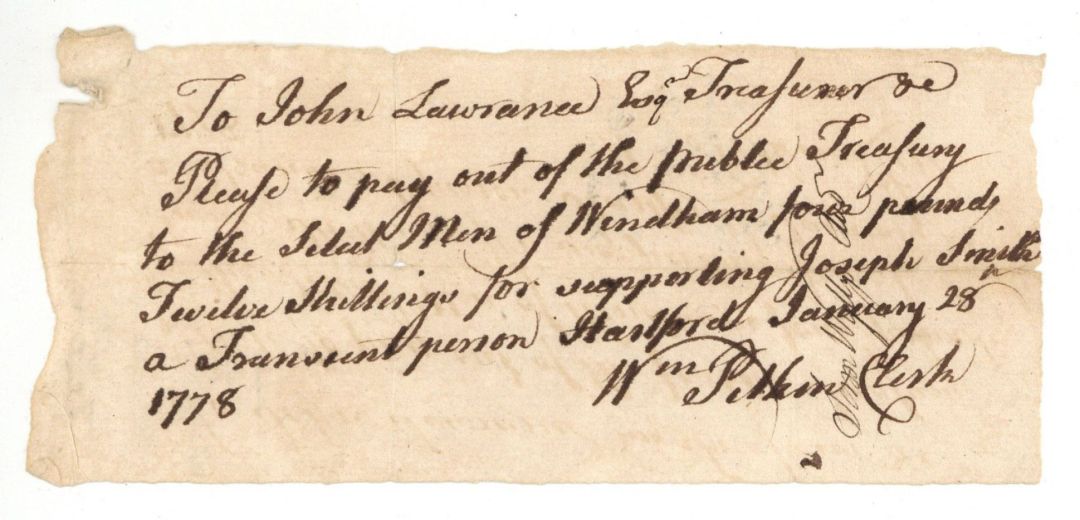 To John Lawrance Esqr Treasurer &c
Please to pay out of the publec Treasury
to the Select Men of Windham four pounds
Twelve Shillings for supporting Joseph Smith
a Transcent person Hartford January 28th
1778 Wm Pitkin Clerk